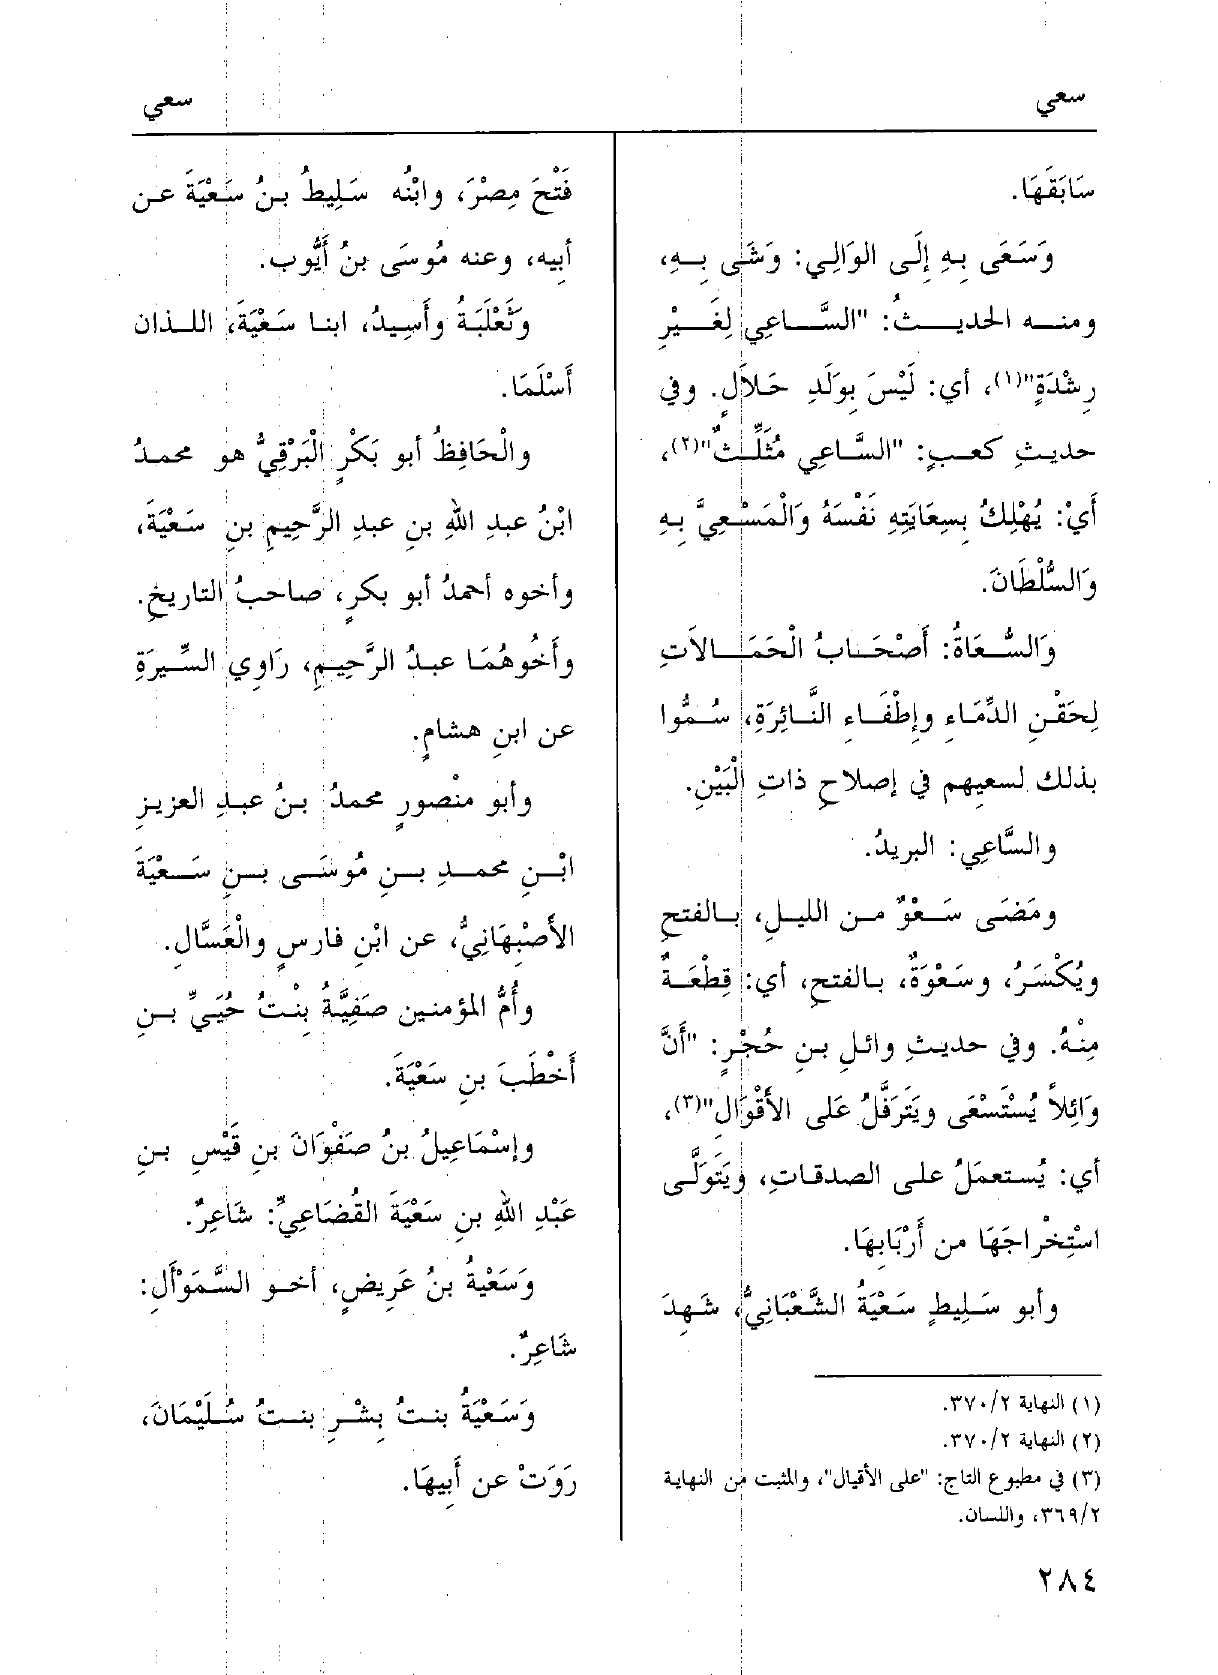 سعي
سعي
سَابَقَهَا.
وَسَعَى بِهِ إِلَى الوَالِي: وَشَى بِهِ،
ومنه الحديثُ: "السَّاعِي لِغَيْرِ
رِشْدَةٍ"(١)، أي: لَيْسَ بِوَلَدِ حَلاَلٍ. وفي
حديثِ كعبٍ: "السَّاعِي مُثَلِّثٌ"(٢)،
أَيْ: يُهْلِكُ بِسِعَايَتِهِ نَفْسَهُ وَالْمَسْعِيَّ بِهِ
وَالسُّلْطَانَ.
وَالسُّعَاةُ: أَصْحَابُ الْحَمَالاَتِ
لِحَقْنِ الدِّمَاءِ وإِطْفَاءِ النَّائِرَةِ، سُمُّوا
بذلك لسعيِهم في إصلاحِ ذاتِ الْبَيْنِ.
والسَّاعِي: البريدُ.
ومَضَى سَعْوٌ من الليلِ، بالفتحِ
ويُكْسَرُ، وسَعْوَةٌ، بالفتحِ، أي: قِطْعَةٌ
مِنْهُ. وفي حديثِ وائلِ بنِ حُجْرٍ: "أَنَّ
وَائِلاً يُسْتَسْعَى ويَتَرَفَّلُ عَلى الأَقْوَالِ"(٣)،
أي: يُستعمَلُ على الصدقاتِ، ويَتَوَلَّى
اسْتِخْراجَهَا من أَرْبَابِهَا.
وأبو سَلِيطٍ سَعْيَةُ الشَّعْبَانِيُّ، شَهِدَ
(١) النهاية ٣٧٠/٢.
(٢) النهاية ٣٧٠/٢.
(٣) في مطبوع التاج: "على الأقيال"، والمثبت من النهاية
٣٦٩/٢، واللسان.
فَتْحَ مِصْرَ، وابْنُه سَلِيطُ بنُ سَعْيَةَ عن
أبيه، وعنه مُوسَى بنُ أَيُّوب.
وثَعْلَبَةُ وأَسِيدُ، ابنا سَعْيَةَ، اللذان
أَسْلَمَا.
والْحَافِظُ أبو بَكْرٍ الْبَرْقِيُّ هو محمدُ
ابْنُ عبدِ اللهِ بنِ عبدِ الرَّحِيمِ بنِ سَعْيَةَ،
وأخوه أحمدُ أبو بكرٍ، صاحبُ التاريخِ.
وأَخُوهُمَا عبدُ الرَّحِيمِ، رَاوِي السِّيرَةِ
عن ابنِ هشامٍ.
وأبو منْصورٍ محمدُ بنُ عبدِ العزيزِ
ابْنِ محمدِ بنِ مُوسَى بنِ سَعْيَةَ
الأَصْبِهَانِيُّ، عن ابْنِ فارسٍ والْعَسَّالِ.
وأُمُّ المؤمنين صَفِيَّةُ بِنْتُ حُيَيِّ بنِ
أَخْطَبَ بنِ سَعْيَةَ.
وإسْمَاعِيلُ بنُ صَفْوَانَ بنِ قَيْسِ بنِ
عَبْدِ اللهِ بنِ سَعْيَةَ القُضَاعِيِّ: شَاعِرٌ.
وَسَعْيةُ بنُ عَرِيضٍ، أخو السَّمَوْأَلِ:
شَاعِرٌ.
وَسَعْيَةُ بنتُ بِشْرِ بنتُ سُلَيْمَانَ،
رَوَتْ عن أَبِيهَا.
٢٨٤